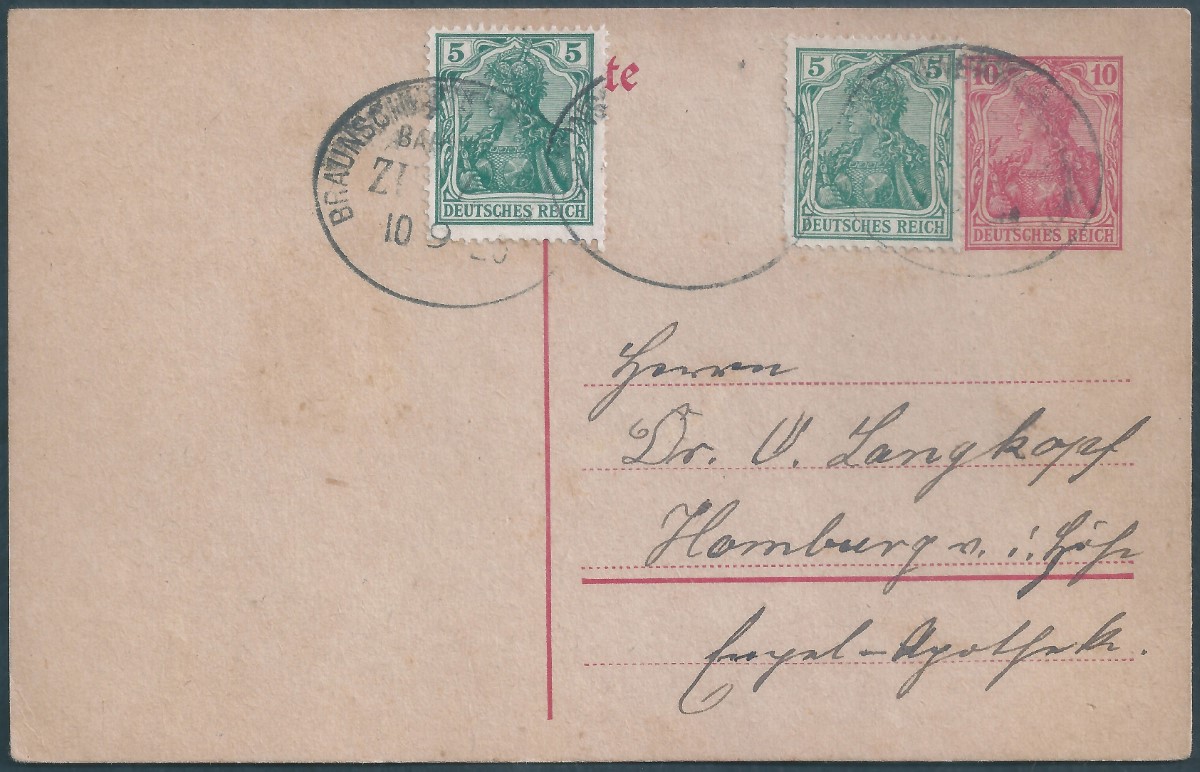 5 5
DEUTSCHES REICH
te
5 5
DEUTSCHES REICH
10 10
DEUTSCHES REICH
BRAUNSCHW
BA
ZU
10 9 20
Herrn
Dr. V. Langkopf
Homburg v. d. Höhe
Engel-Apotheke.